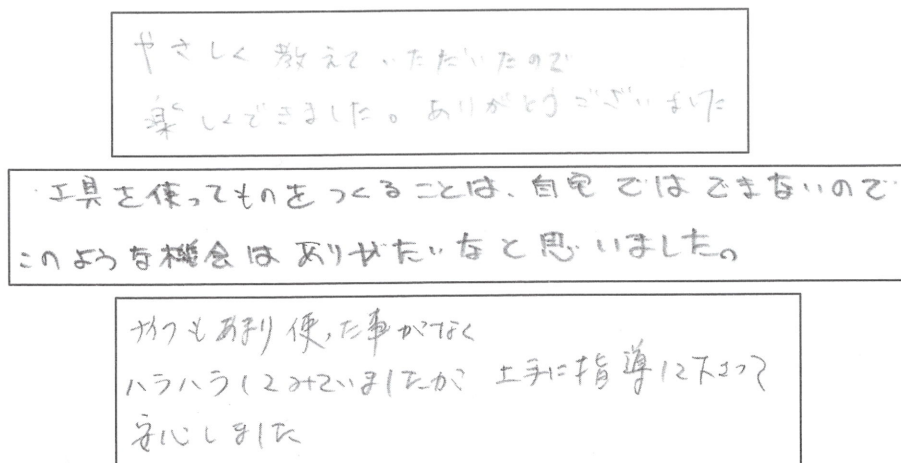 やさしく教えていただいたので
楽しくできました。ありがとうございました
工具を使ってものをつくることは、自宅ではできないので
このような機会はありがたいなと思いました。
ナイフもあまり使った事がなく
ハラハラしてみていましたが、上手に指導して下さって
安心しました